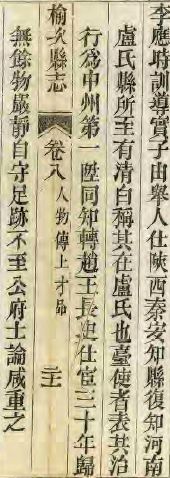 李應時訓導實子由舉人仕陝西秦安知縣復知河南
盧氏縣所至有清白稱其在盧氏也臺使者表其治
行爲中州第一陞同知轉趙王長史仕宦三十年歸
榆次縣志
卷八人物傳上才品
二十
無餘物嚴靜自守足跡不至公府士論咸重之